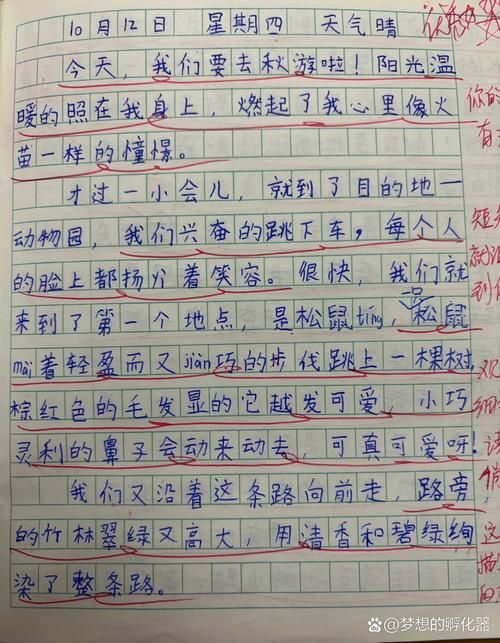 10月12日 星期四 天气晴
今天，我们要去秋游啦！阳光温
暖的照在我身上，燃起了我心里像火
苗一样的憧憬。
才过一小会儿，就到了目的地一
动物园，我们兴奋的跳下车，每个人
的脸上都扬兮着笑容。很快，我们就
来到了第一个地点，是松鼠tíng，松鼠
mài着轻盈而又jiàn巧的步伐跳上一棵树，
棕红色的毛发显的它越发可爱，小巧
灵利的鼻子会动来动去，可真可爱呀！
我们又沿着这条路向前走，路旁
的竹林翠绿又高大，用清香和碧绿绚
染了整条路。
你的
有
短
就
到
观
细
活
这
描
@梦想的孵化器